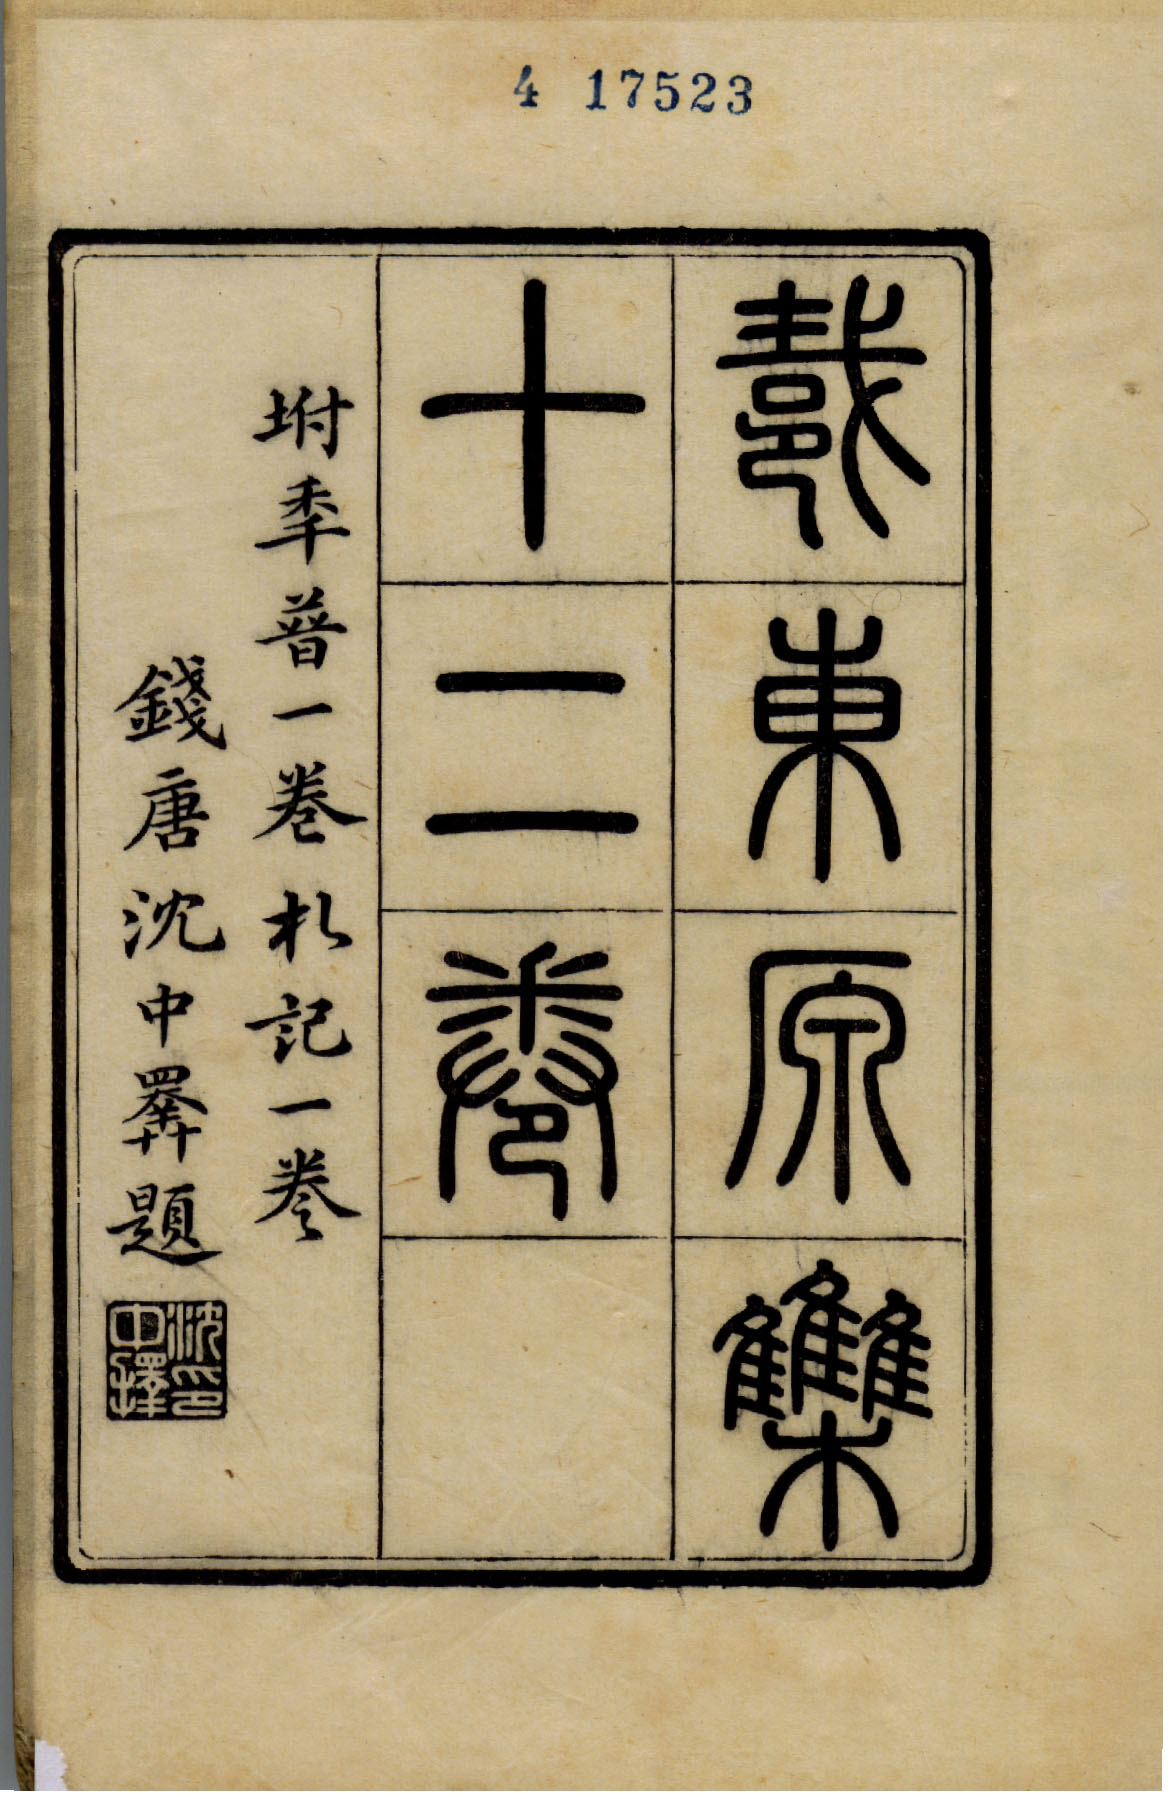 4 17523
戴東原集
十二卷
坿秊普一卷札記一卷
錢唐沈中擇題
沈印
中擇